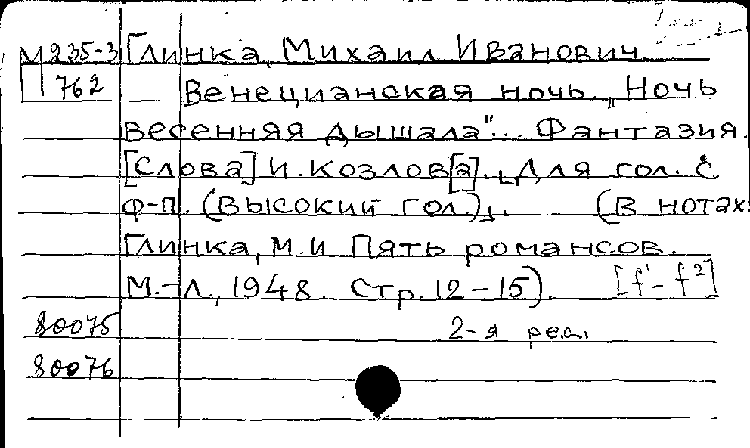 М235-3 Глинка, Михаил Иванович
762 Венецианская ночь. „Ночь
весенняя дышала"... Фантазия.
[Слова] И. Козлов[а]. [Для гол. с
ф-п. (высокий гол.)]. (В нотах:
Глинка, М.И. Пять романсов.
М.-Л., 1948. Стр. 12-15). [f¹-f²]
80075 2-я ред.
80076